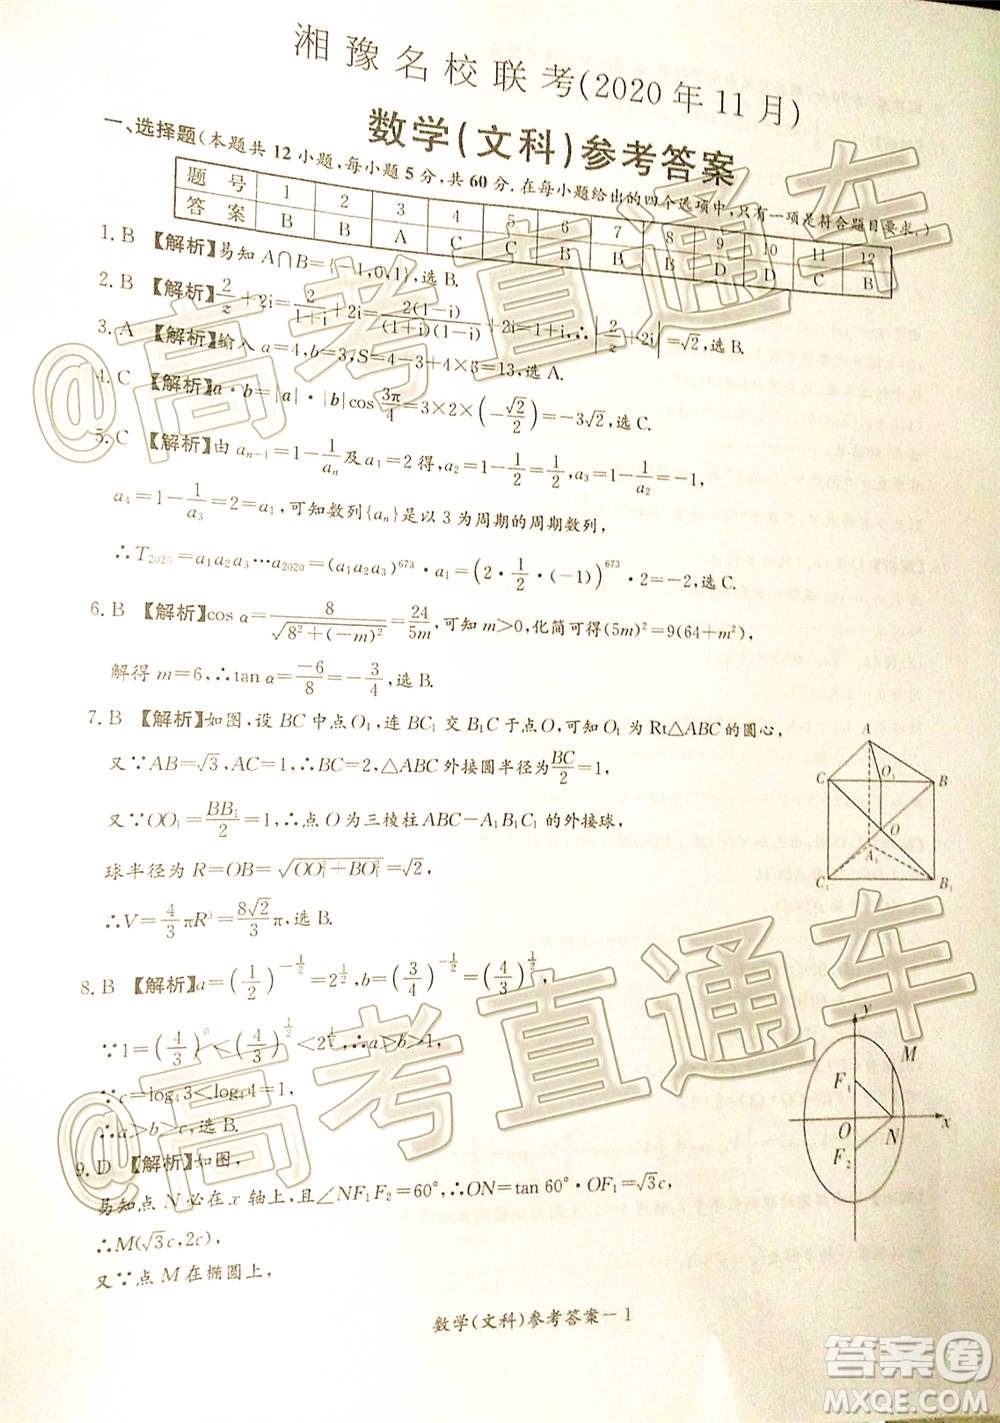 湘豫名校联考(2020年11月)
数学(文科)参考答案
一、选择题(本题共12小题,每小题5分,共60分.在每小题给出的四个选项中,只有一项是符合题目要求.)
题号 1 2 3 4 5 6 7 8 9 10 11 12
答案 B B A C C B B B D D C B
1. B 【解析】易知A∩B={-1,0,1},选B.
2. B 【解析】2/z+2i=2/(1+i)+2i=2(1-i)/((1+i)(1-i))+2i=1+i,∴|2/z+2i|=√2,选B.
3. A 【解析】输入a=4,b=3,S=4-3+4×3=13,选A.
4. C 【解析】a·b=|a|·|b|cos 3π/4=3×2×(-√2/2)=-3√2,选C.
5. C 【解析】由a_{n-1}=1-1/a_n及a₁=2得,a₂=1-1/a₁=1/2,a₃=1-1/a₂=-1,
a₄=1-1/a₃=2=a₁,可知数列{aₙ}是以3为周期的周期数列,
∴T₂₀₂₀=a₁a₂a₃…a₂₀₂₀=(a₁a₂a₃)⁶⁷³·a₁=(2·1/2·(-1))⁶⁷³·2=-2,选C.
6. B 【解析】cos α=8/√(8²+(-m)²)=24/5m,可知m>0,化简可得(5m)²=9(64+m²),
解得m=6,∴tan α=-6/8=-3/4,选B.
7. B 【解析】如图,设BC中点O₁,连BC₁交B₁C于点O,可知O₁为Rt△ABC的圆心,
又∵AB=√3,AC=1,∴BC=2,△ABC外接圆半径为BC/2=1,
又∵OO₁=BB₁/2=1,∴点O为三棱柱ABC-A₁B₁C₁的外接球,
球半径为R=OB=√(OO₁²+BO₁²)=√2,
∴V=4/3πR³=8√2/3π,选B.
A
C O₁ B
O
A₁
C₁ B₁
8. B 【解析】a=(1/2)^{-1/2}=2^{1/2},b=(3/4)^{-1/2}=(4/3)^{1/2},
∵1=(4/3)⁰<(4/3)^{1/2}<2^{1/2},∴a>b>1,
∵c=log₄3<log₄4=1,
∴a>b>c,选B.
9. D 【解析】如图,
易知点N必在x轴上,且∠NF₁F₂=60°,∴ON=tan 60°·OF₁=√3c,
∴M(√3c,2c),
又∵点M在椭圆上,
y
M
F₁
O N x
F₂
数学(文科)参考答案-1
@高考直通车
@高考直通车
答案圈
MXQE.COM